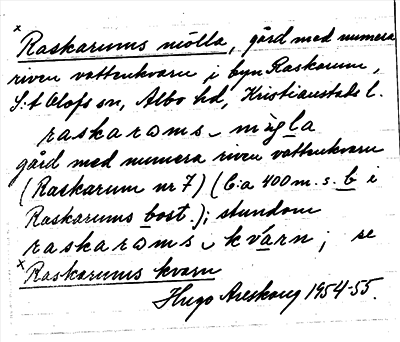 × Raskarums mölla, gård med numera
riven vattenkvarn i byn Raskarum,
S:t Olofs sn, Albo hd, Kristianstads l.
raskarəms ‿ mǫ̀la
gård med numera riven vattenkvarn
(Raskarum nr 7) (C:a 400 m. s. b i
Raskarums bost.); stundom
raskarəms ‿ kvárn; se
× Raskarums kvarn
Hugo Areskoug 1954-55.